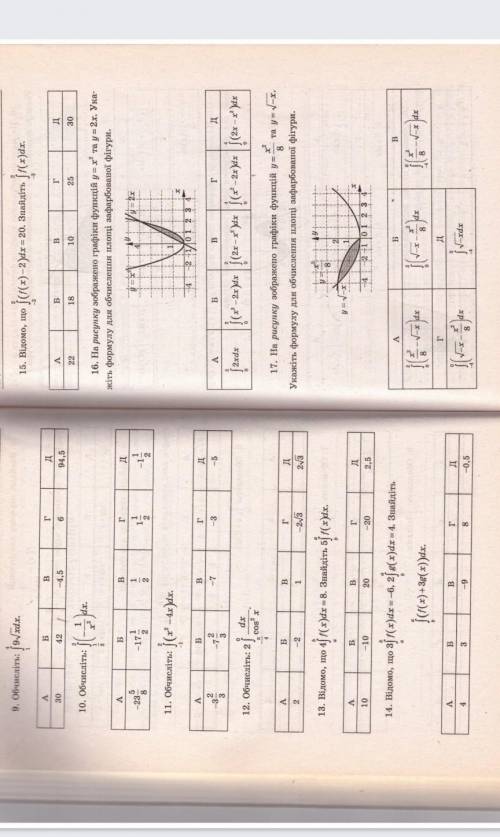 9. Обчисліть: ∫9√xdx.
А Б В Г Д
30 42 -4,5 6 94,5
10. Обчисліть: ∫(-1/x³)dx.
А Б В Г Д
-23 5/8 -17 1/2 1/2 1 1/2 -1 1/2
11. Обчисліть: ∫(x² - 4x)dx.
А Б В Г Д
-3 2/3 -7 2/3 -7 -3 -5
12. Обчисліть: 2∫dx/cos² x
А Б В Г Д
2 -2 1 -2√3 2√3
13. Відомо, що 4∫f(x)dx = 8. Знайдіть 5∫f(x)dx.
А Б В Г Д
10 -10 20 -20 2,5
14. Відомо, що 3∫f(x)dx = -6, 2∫g(x)dx = 4. Знайдіть
∫(f(x) + 3g(x))dx.
А Б В Г Д
4 3 -9 8 -0,5
15. Відомо, що ∫(f(x) - 2)dx = 20. Знайдіть ∫f(x)dx.
А Б В Г Д
22 18 10 25 30
16. На рисунку зображено графіки функцій y = x² та y = 2x. Ука-
жіть формулу для обчислення площі зафарбованої фігури.
y = x² y y = 2x
4
1
-4 -2 -1 0 1 2 3 4 x
А Б В Г Д
∫2xdx ∫(x² - 2x)dx ∫(2x - x²)dx ∫(x² - 2x)dx ∫(2x - x²)dx
17. На рисунку зображено графіки функцій y = x²/8 та y = √-x.
Укажіть формулу для обчислення площі зафарбованої фігури.
y = x²/8 y
y = √-x 2
1
-4 -2 -1 0 1 2 3 4 x
А Б В
∫(x²/8 - √-x)dx ∫(√-x - x²/8)dx ∫(x²/8 - √-x)dx
Г Д
∫(√-x - x²/8)dx ∫√-xdx